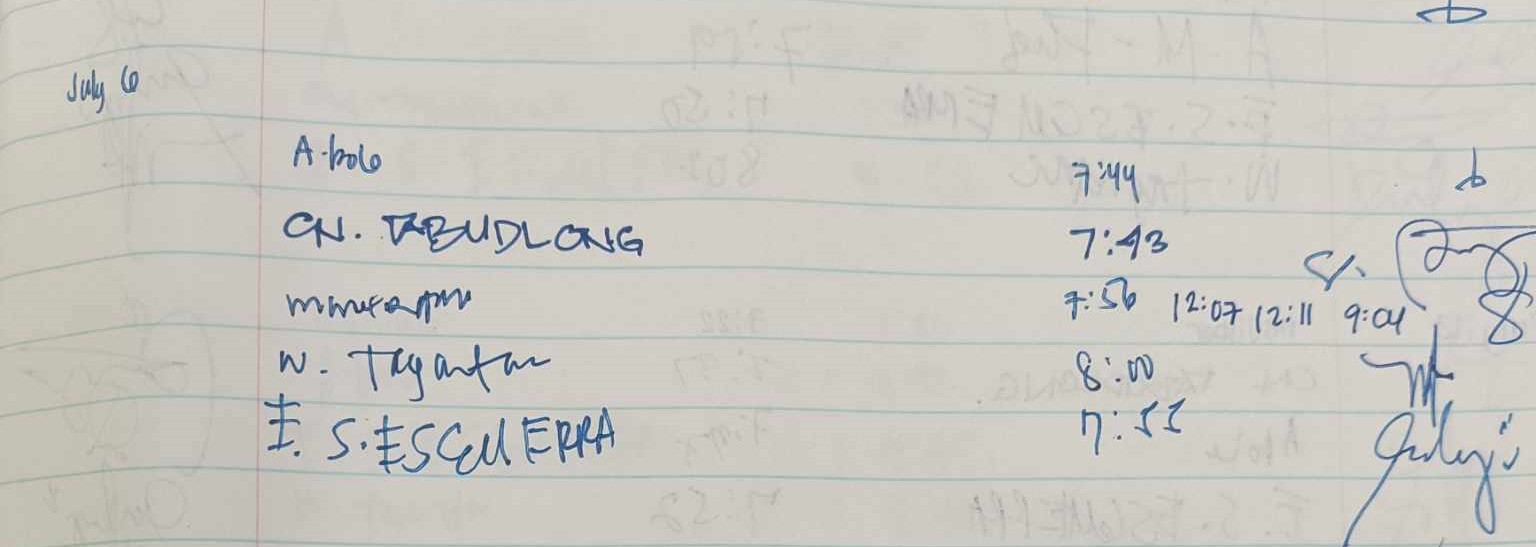 July 6
A. bolo 7:44
CN. TABUDLONG 7:43
7:56 12:07 12:11 9:04
W. Tayantan 8:00
E. S. ESGUERRA 7:55